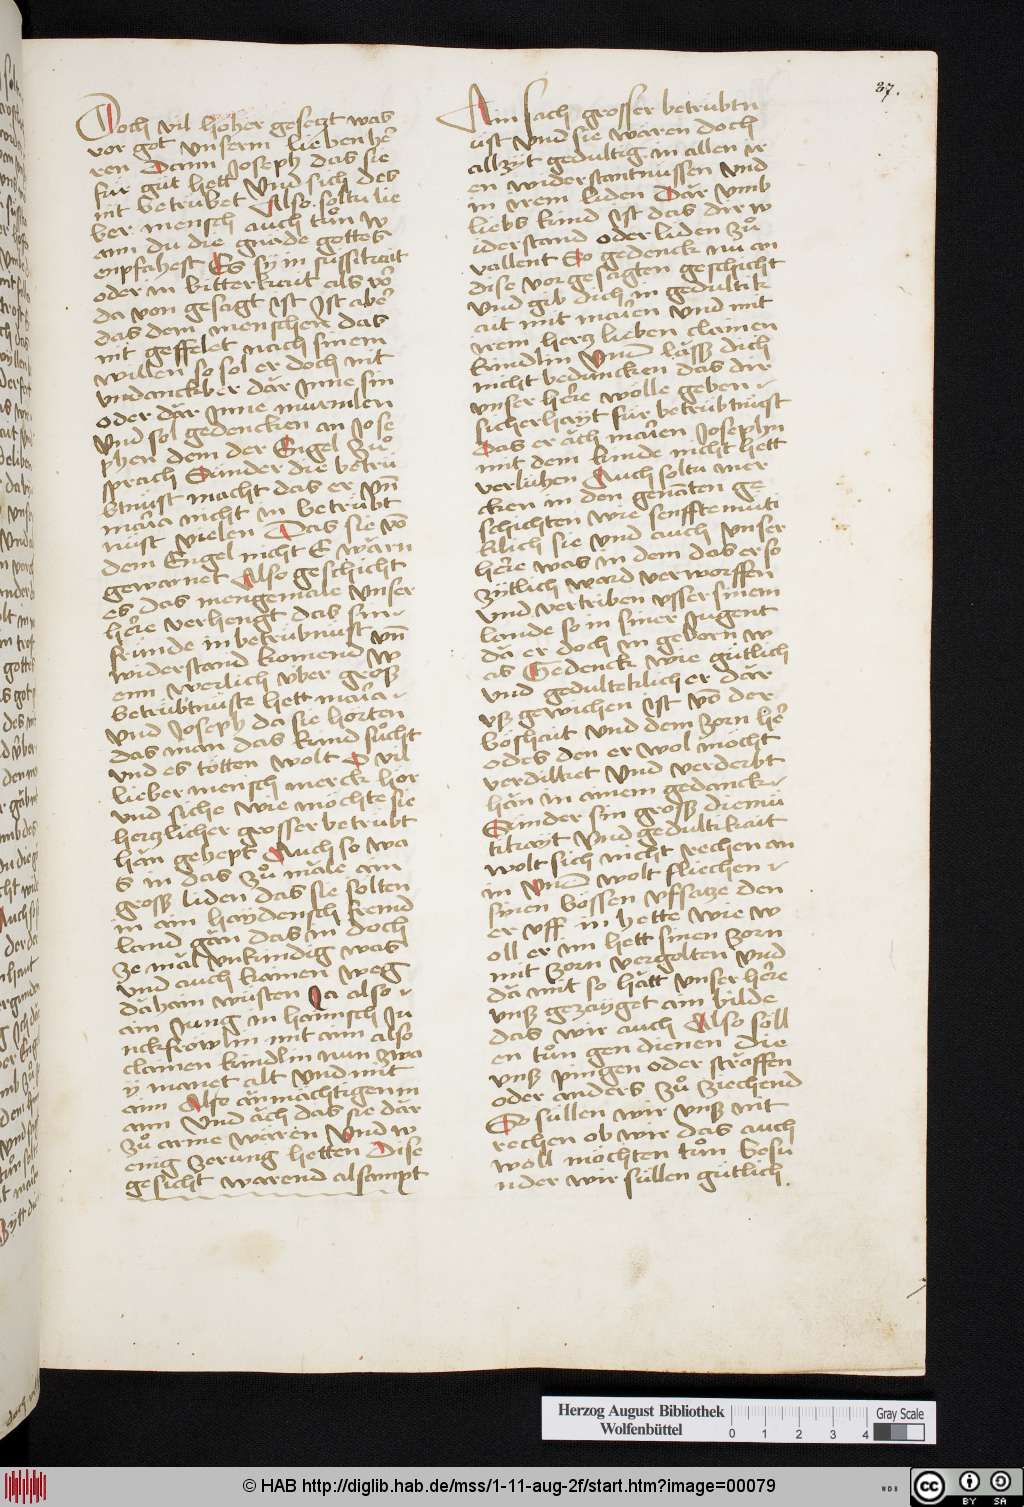 37.
Doch vil hoher gesetzt was
vor got vnserm lieben he
ren Dann Joseph das sie
fur gůt hett Vnd sich des
nit betrubet Also soltu lie
ber mensch auch tůn w
ann du die gnade gottes
enpfahest Es sy in sussikait
oder in bitterkait als vor
da von gesagt ist Ist aber
das dem menschen das
nit geffelet nach sinem
willen so sol er doch nit
vndanckber där Inne sin
oder där Inne murmlen
Vnd sol gedencken an Jose
phen dem der Engel zů
sprach Sunder die betru
btnust macht das er vn̄
maria nicht in betrubt
nust vielen Das sie vō
dem Engel nicht E wärn
gewarnet Also geschicht
es das mengemale vnser
here verhengt das sin
frunde in betrubnust vn̄
widerstand komend W
enn werlich vber groß
betrubtnuste hett maria
Vnd Joseph da sie horten
das man das kind sůcht
vnd es totten wolt O vil
lieber mensch merck hier
vnd siche wie mochte sie
hertzlicher grosser betrubt
hän gehept Auch so wa
s in das zů mäle ain
groß liden das sie solten
in ain haydensch fremd
land gän das in doch
ze mäl vnkundig was
vnd auch kainen weg
dähain wusten Ja also
ain Jung in hainisch Ju
nckfrowlin mit aim also
clainen kindlin nun zwa
y manet alt Vnd mit
aim Also änmachtigen m
ann Vnd äch das sie där
zů arme waren Vnd w
enig zerung hetten Dise
gesicht warend alsampt
Ain sach grosser betrubtn
ust vnd sie waren doch
allzyt gedultig in allen ir
en widerstantnussen vnd
in irem liden Där vmb
liebs kind ist das dir w
iderstand oder liden zů
vallent So gedenck nu an
dise vorgesagten geschicht
Vnd gib dich in gedultik
ait mit marien vnd mit
irem hertz lieben clainen
kindlin Vnd lässß dich
nicht beduncken das dir
vnser here wolle geben
sicherhayt fur betrubtnust
Das er äch marien Josephn
mit dem kinde nicht hett
verluhen Auch soltu mer
cken in den genāten ge
schichten wie senfftemuti
klich sie vnd auch vnser
here was in dem das er so
zytlich ward verworffen
vnd vertriben vsser sinem
lande so in siner Jugent
da er doch in geborn w
as Gedenck wie gůtlich
vnd gedulteklich er där
vß gewichen ist vō der
boshait vnd dem zorn her
odes den er wol mocht
verdilket Vnd verderbt
hän in ainem gedanck
Sunder sin groß diemu
tikayt Vnd gedultikait
wolt sich nicht rechen an
in Vnd wolt fliechen
sinen bossen vffsatze den
er vff in hette wie w
oll er im hett sinen zorn
mit zorn vergolten Vnd
da mit so hätt vnser here
vnß gezayget ain bilde
das wir auch Also soll
en tůn gen dienen Die
vnß pinigen oder sträffen
oder anders zů ziechend
So sullen wir vnß nit
rechen ob wir das auch
woll möchten tůn besu
nder wir sullen gutlich
Herzog August Bibliothek
Wolfenbüttel
0 1 2 3 4
Gray Scale
© HAB http://diglib.hab.de/mss/1-11-aug-2f/start.htm?image=00079
cc BY SA